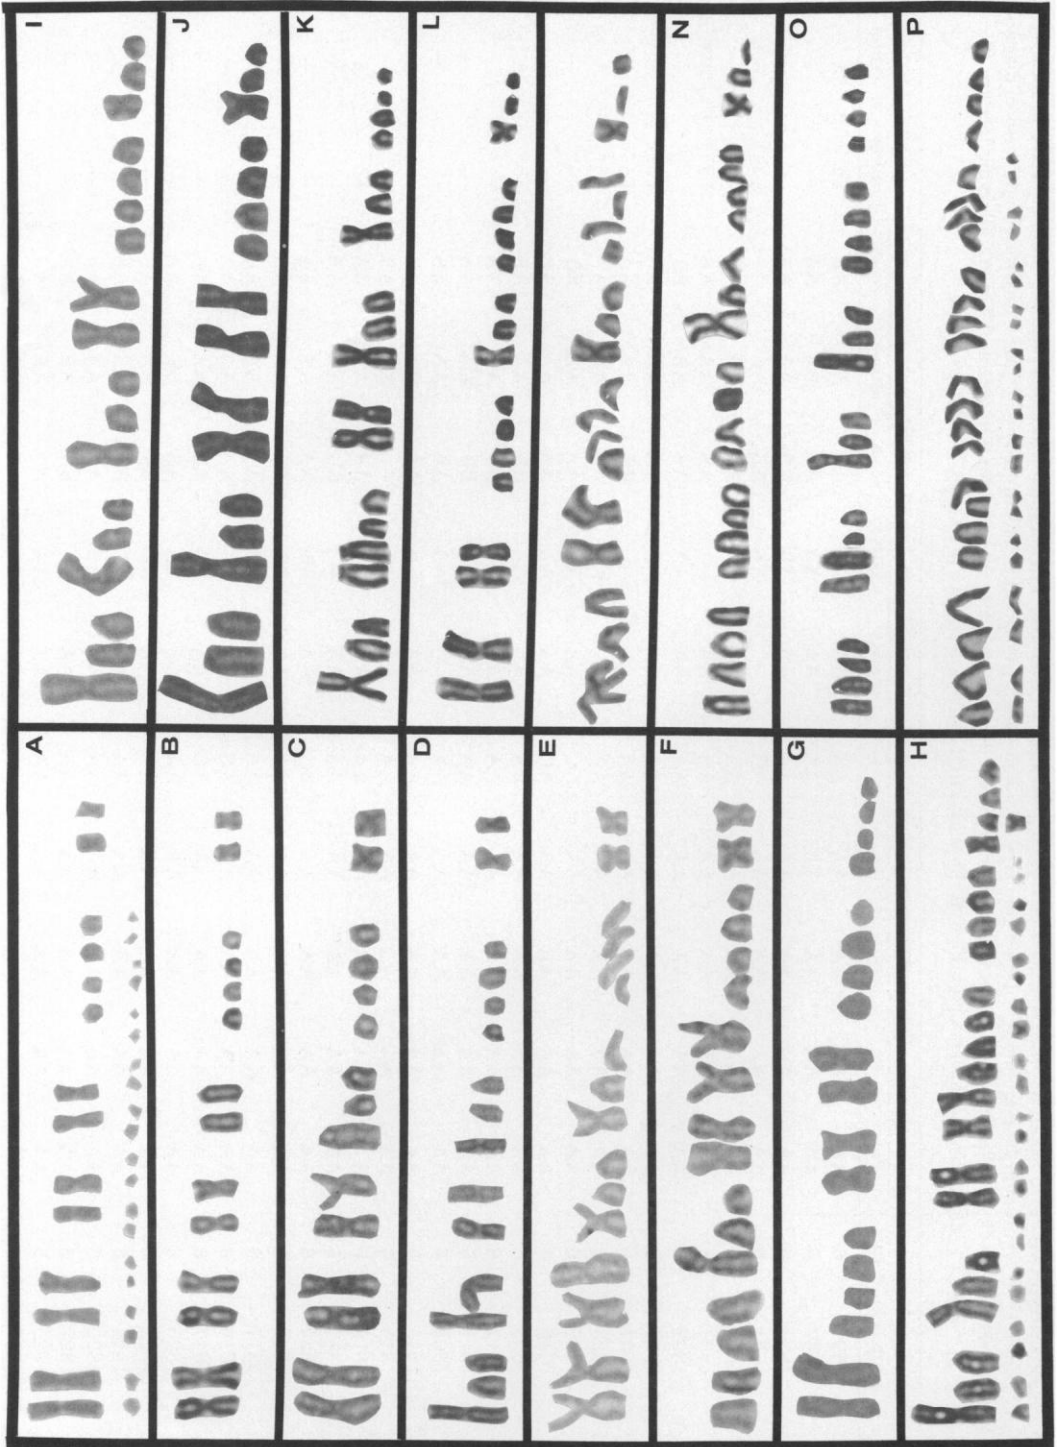 A
B
C
D
E
F
G
H
I
J
K
L
N
O
P